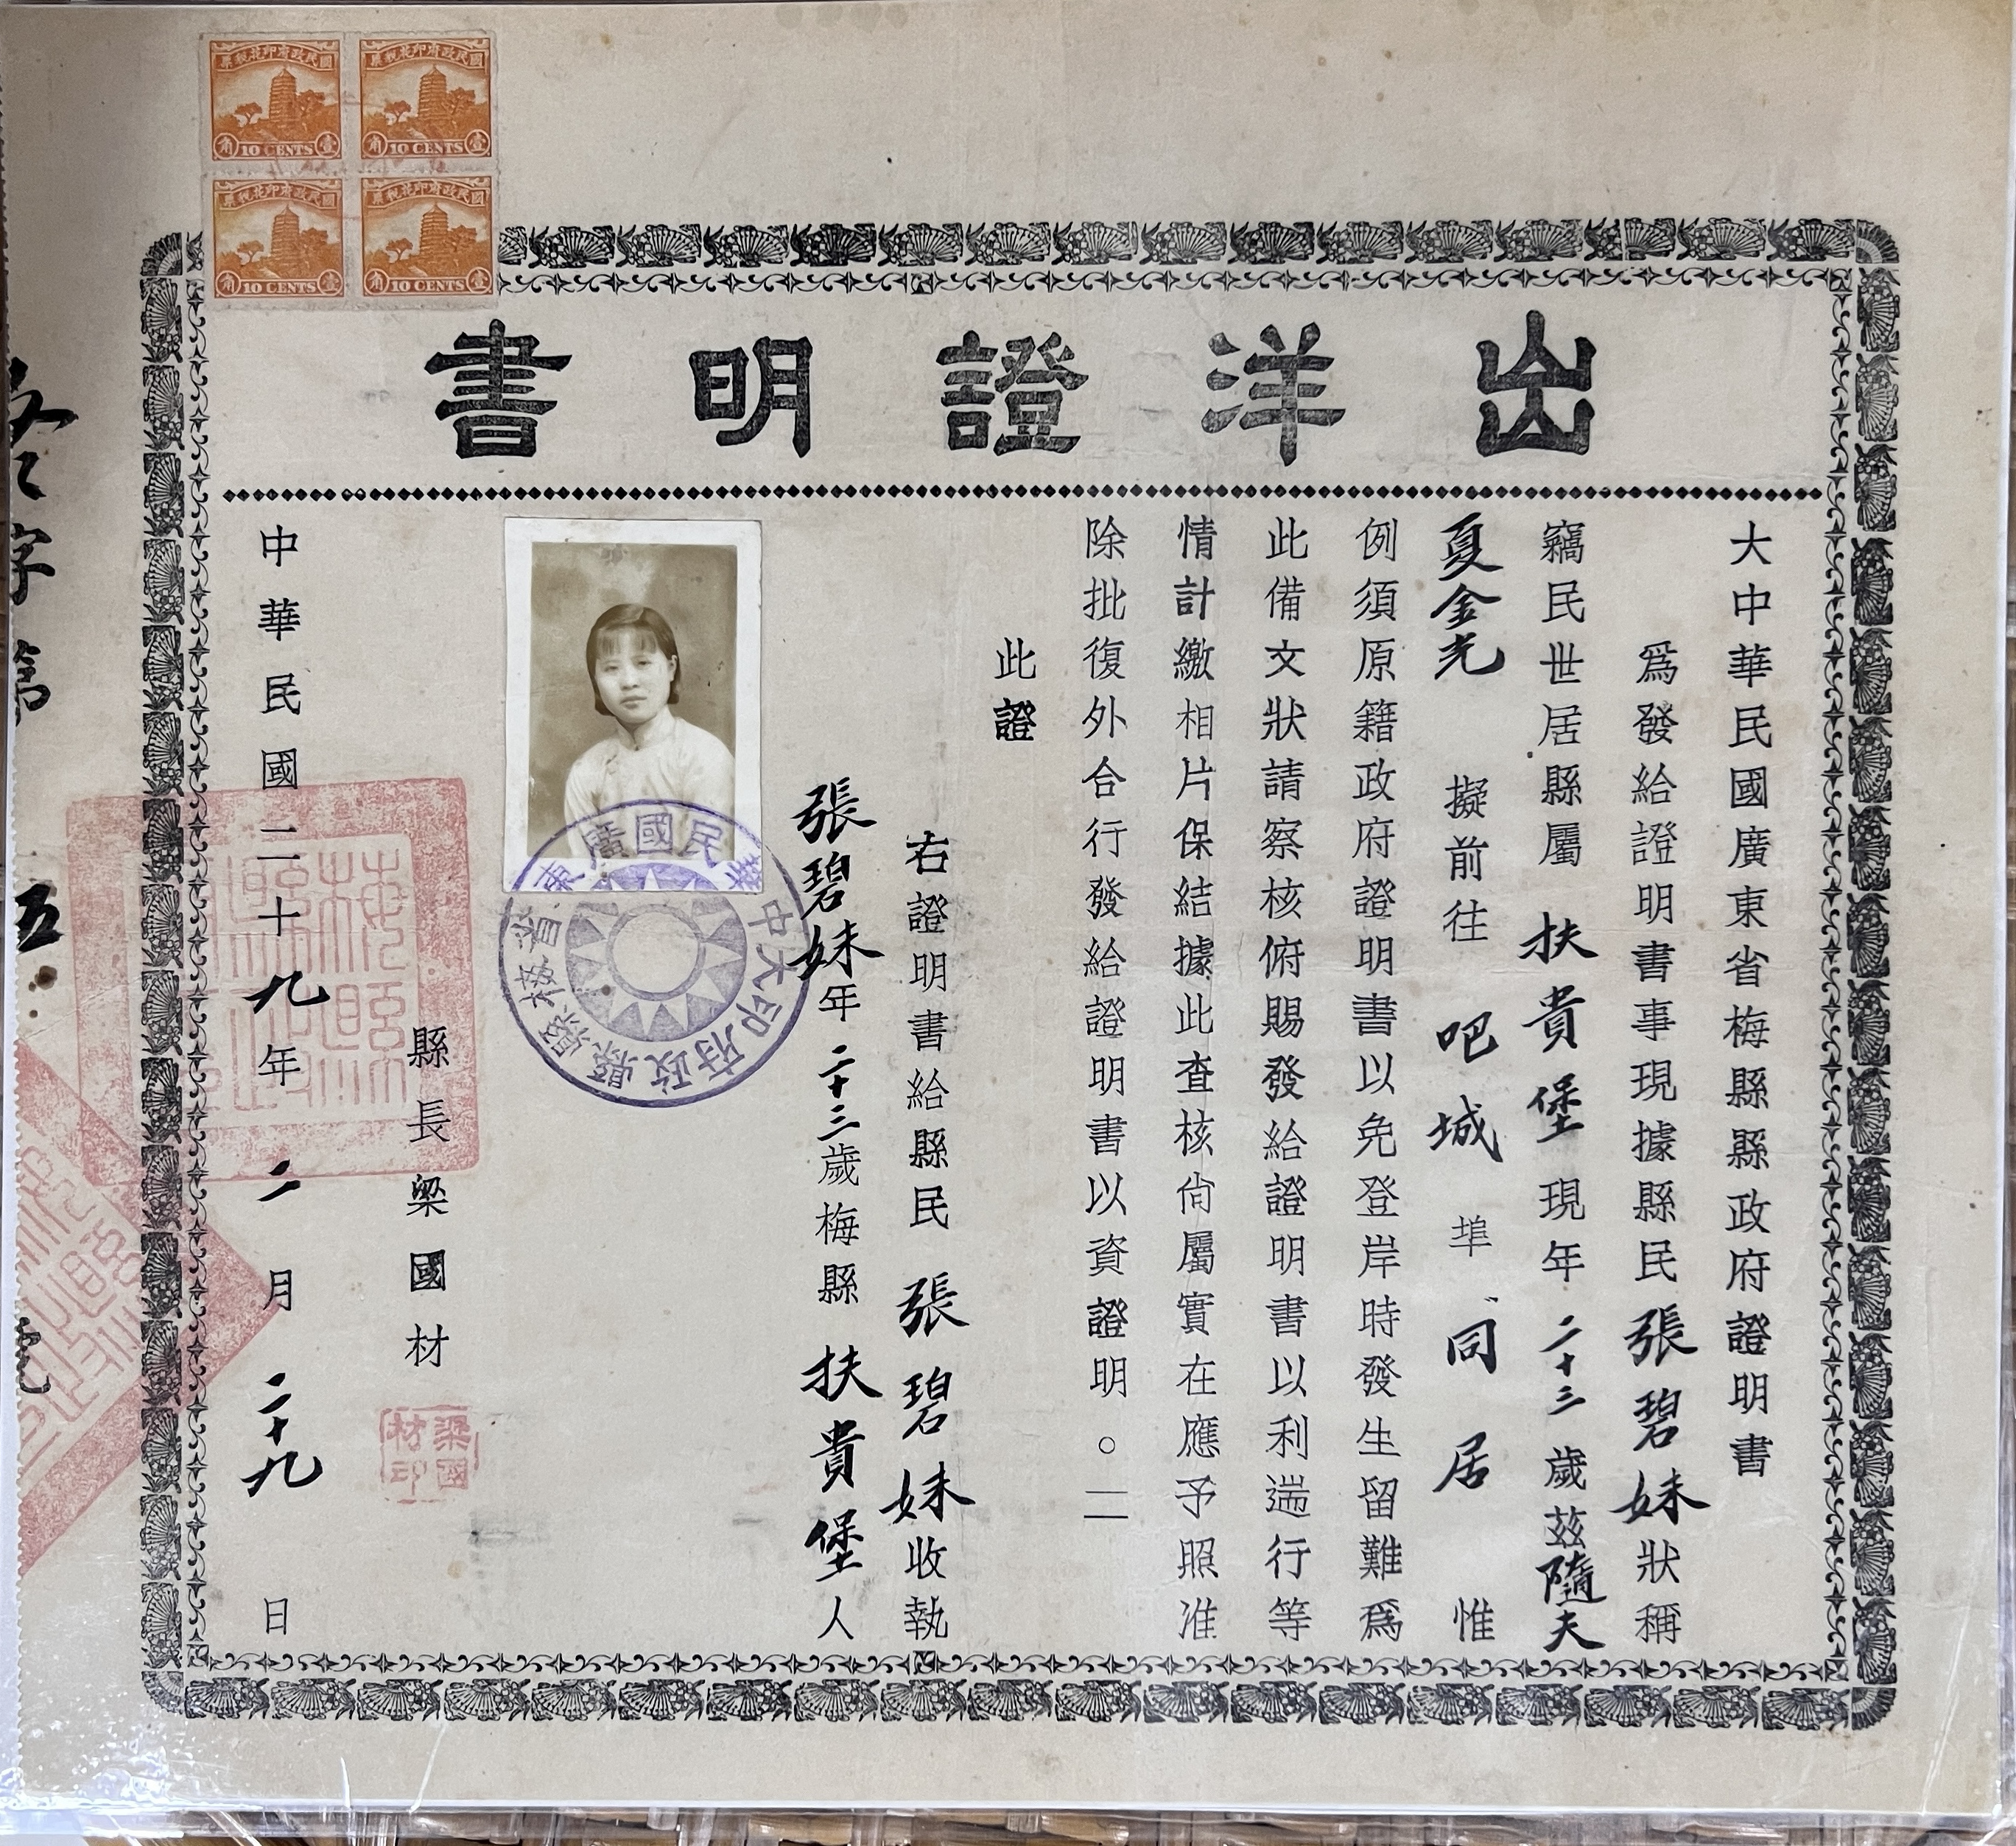 國民政府印花稅票
壹角
10 CENTS
國民政府印花稅票
壹角
10 CENTS
國民政府印花稅票
壹角
10 CENTS
國民政府印花稅票
壹角
10 CENTS
出洋證明書
大中華民國廣東省梅縣縣政府證明書
為發給證明書事現據縣民張碧妹狀稱
竊民世居縣屬扶貴堡現年二十三歲茲隨夫
夏金光擬前往吧城埠同居惟
例須原籍政府證明書以免登岸時發生留難為
此備文狀請察核俯賜發給證明書以利遄行等
情計繳相片保結據此查核尚屬實在應予照准
除批復外合行發給證明書以資證明。
此證
右證明書給縣民張碧妹收執
張碧妹年二十三歲梅縣扶貴堡人
大中華民國廣東省梅縣縣政府印
縣長梁國材
梁國材印
中華民國二十九年二月二十九日
字第
五